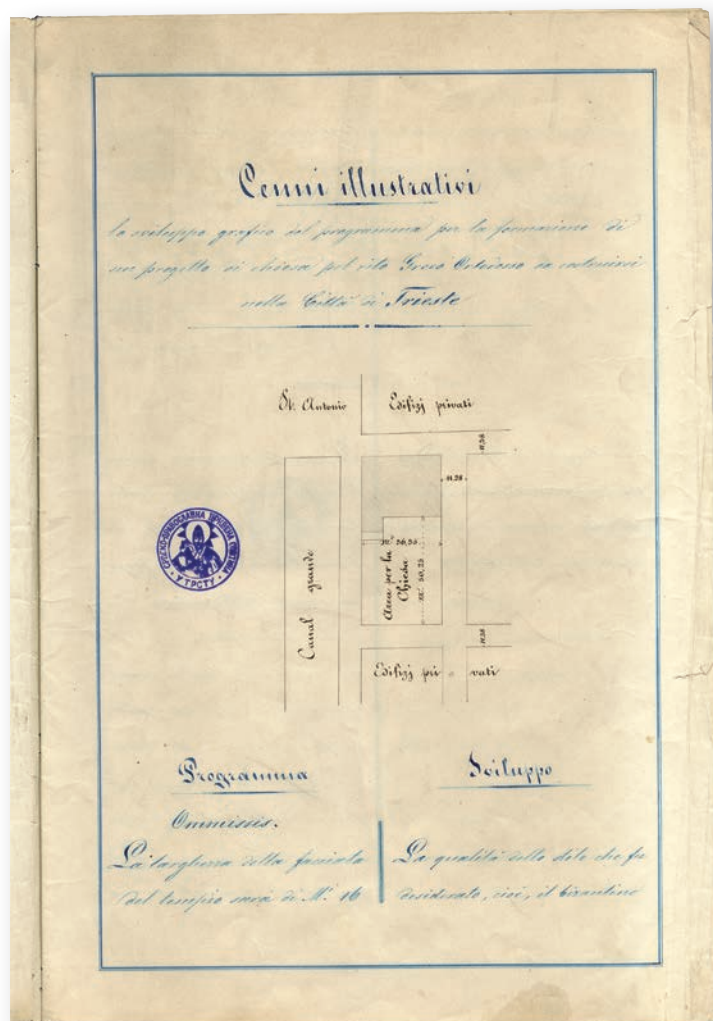 Cenni illustrativi
lo sviluppo grafico del programma per la formazione di
un progetto di chiesa pel rito Greco Ortodosso da costruirsi
nella Città di Trieste
St. Antonio
Edifizj privati
11,38
11.38
Canal grande
Area per la Chiesa
11,38
Edifizj privati
СРПСКО-ПРАВОСЛАВНА ЦРКВЕНА ОПШТИНА
У ТРСТУ
Programma
Ommissis.
La larghezza della facciata
del tempio sarà di M.i 16
Sviluppo
La qualità dello stile che fu
desiderato, cioè, il bizantino